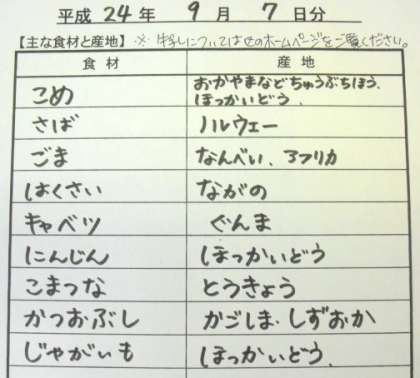 平成 24 年 9 月 7 日分
【主な食材と産地】※ 牛乳については区のホームページをご覧ください。
食材 産地
こめ おかやまなどちゅうぶちほう、
ほっかいどう、
さば ノルウェー
ごま なんべい、アフリカ
はくさい ながの
キャベツ ぐんま
にんじん ほっかいどう
こまつな とうきょう
かつおぶし かごしま・しずおか
じゃがいも ほっかいどう、